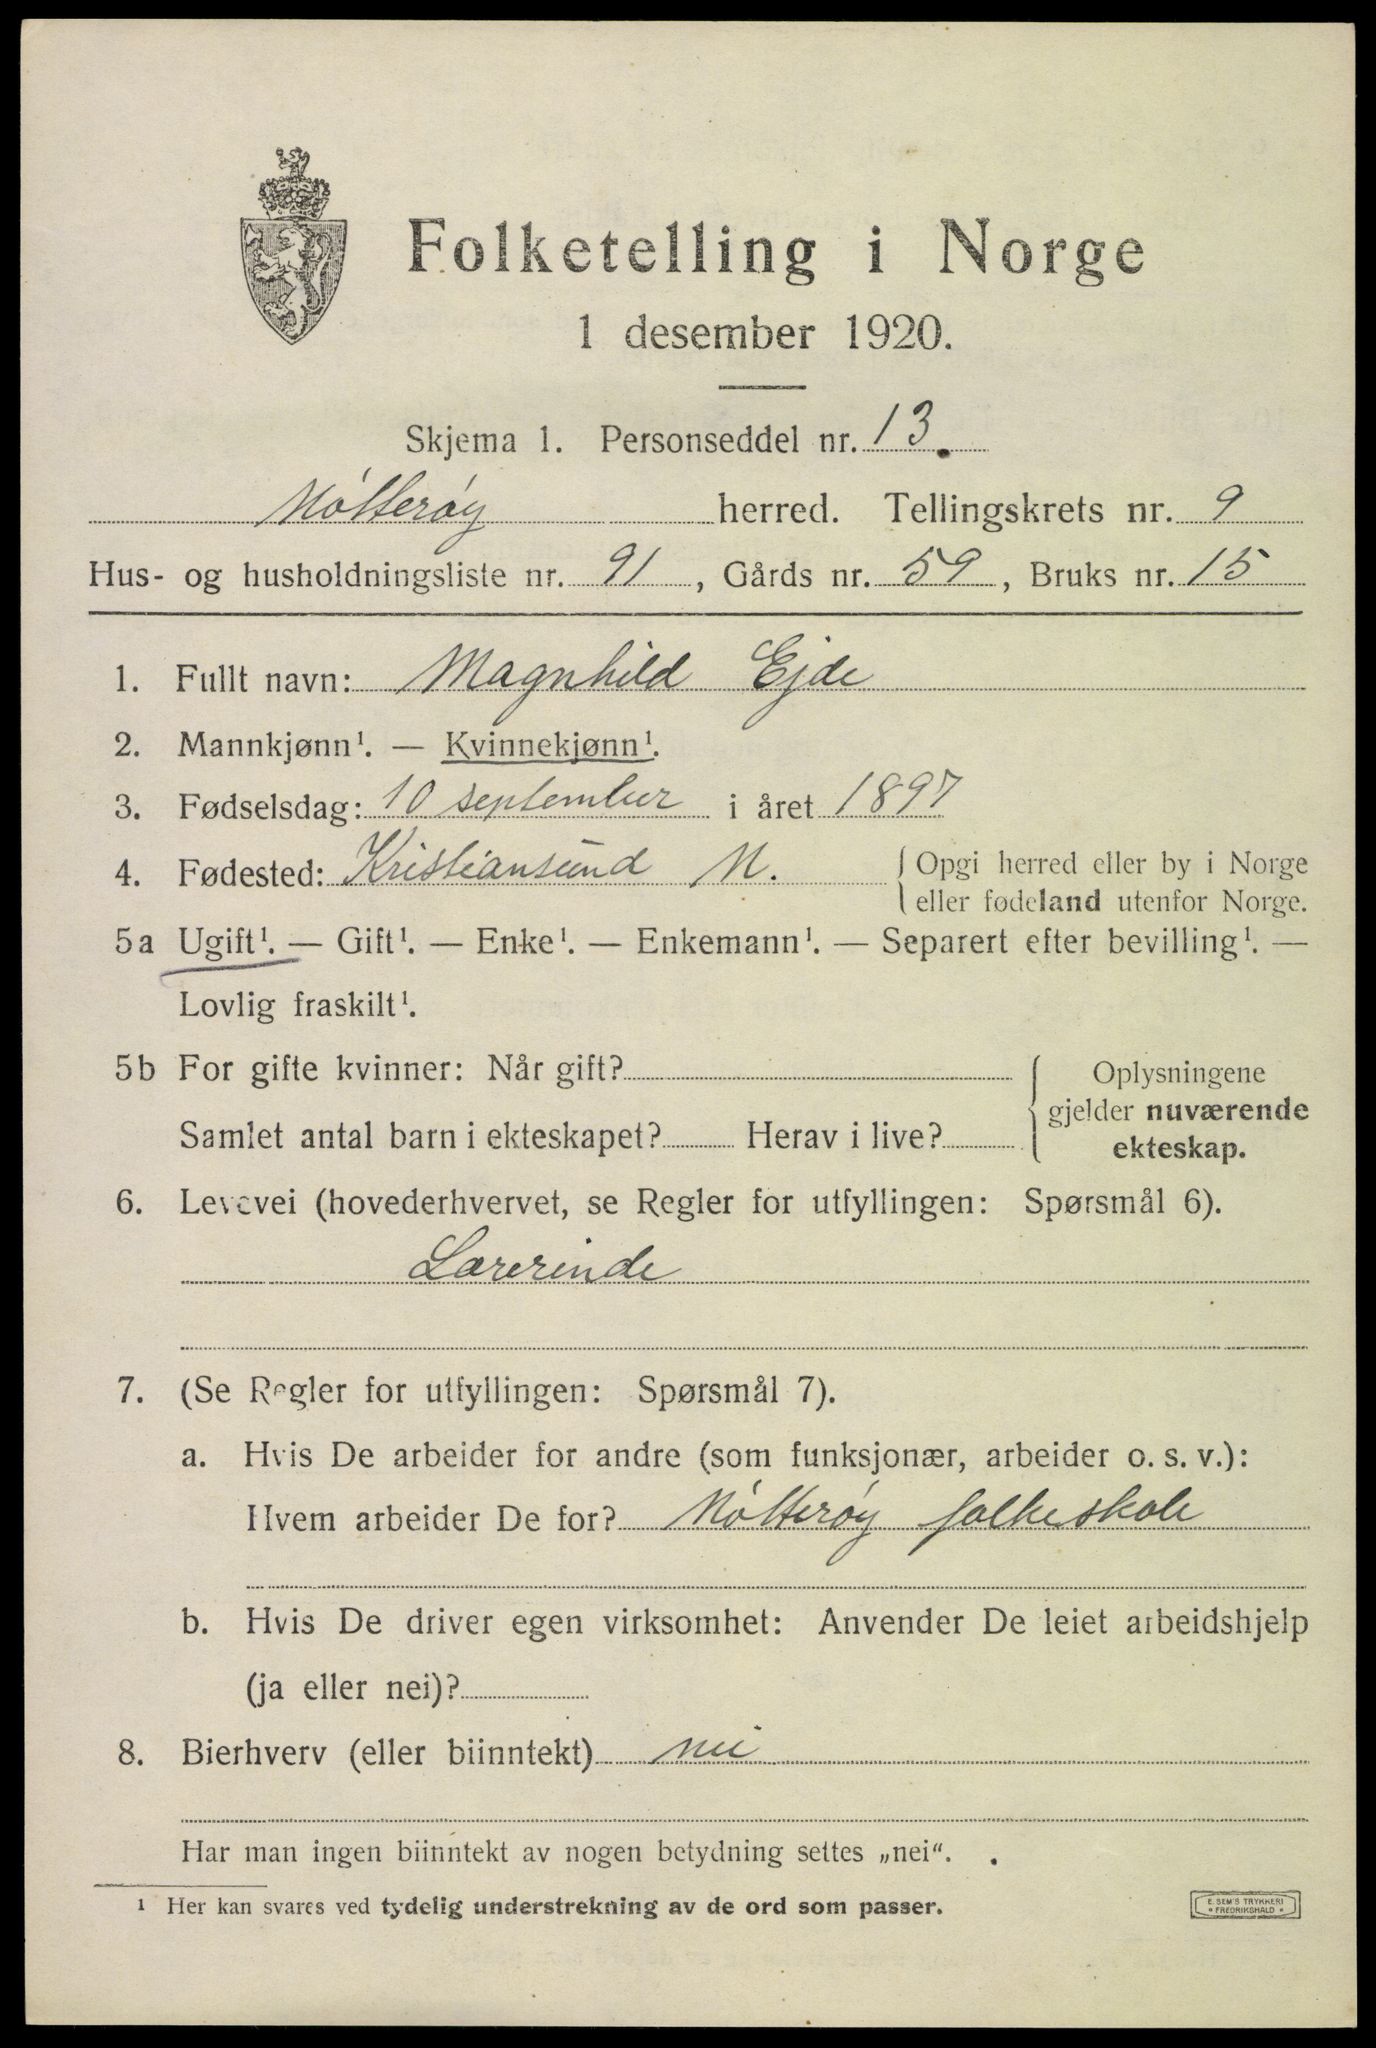 Folketelling i Norge
1 desember 1920.
Skjema 1. Personseddel nr. 13.
Nótterøy herred. Tellingskrets nr. 9
Hus- og husholdningsliste nr. 91, Gårds nr. 59, Bruks nr. 15
1. Fullt navn: Magnhild Ejde
2. Mannkjønn¹. — Kvinnekjønn¹.
3. Fødselsdag: 10 september i året 1897
4. Fødested: Kristiansund N. { Opgi herred eller by i Norge
eller fødeland utenfor Norge.
5a Ugift¹. — Gift¹. — Enke¹. — Enkemann¹. — Separert efter bevilling¹. —
Lovlig fraskilt¹.
5b For gifte kvinner: Når gift?
Samlet antal barn i ekteskapet? Herav i live?
{ Oplysningene
gjelder nuværende
ekteskap.
6. Levevei (hovederhvervet, se Regler for utfyllingen: Spørsmål 6).
Lærerinde
7. (Se Regler for utfyllingen: Spørsmål 7).
a. Hvis De arbeider for andre (som funksjonær, arbeider o. s. v.):
Hvem arbeider De for? Nótterøy folkeskole
b. Hvis De driver egen virksomhet: Anvender De leiet arbeidshjelp
(ja eller nei)?
8. Bierhverv (eller biinntekt) nei
Har man ingen biinntekt av nogen betydning settes „nei“.
¹ Her kan svares ved tydelig understrekning av de ord som passer.
E. SEM'S TRYKKERI
* FREDRIKSHALD *